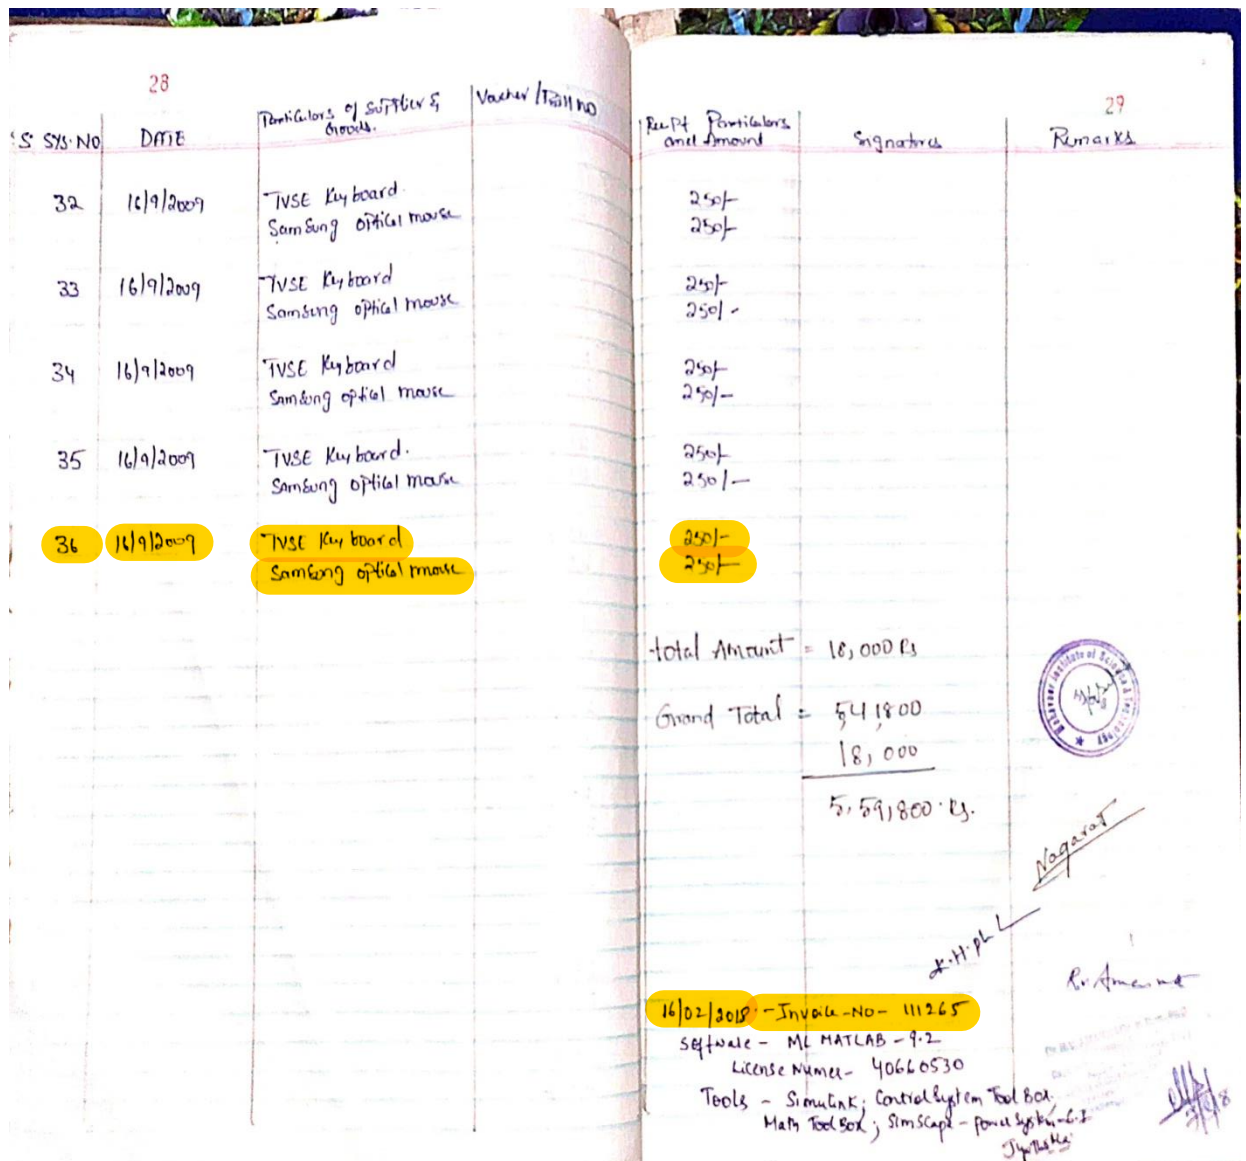 28
S SYS.NO DATE Particulars of Supplier & Goods. Voucher / Bill no
32 16/9/2009 TVSE Keyboard.
Samsung optical mouse
33 16/9/2009 TVSE Keyboard
Samsung optical mouse
34 16/9/2009 TVSE Keyboard
Samsung optical mouse
35 16/9/2009 TVSE Keyboard.
Samsung optical mouse
36 16/9/2009 TVSE Keyboard
Samsung optical mouse
29
Particulars and Amount Signatures Remarks
250/-
250/-
250/-
250/-
250/-
250/-
250/-
250/-
250/-
250/-
total Amount = 18,000 Rs
Grand Total = 5,41,800
18,000
5,59,800 Rs.
Institute of Science & Technology
Nagaraj
16/02/2018 - Invoice-No- 111265
Software - ML MATLAB - 9.2
License Numer- 40660530
Tools - Simulink; Control System Tool Box,
Math Tool Box; SimScape - Power System